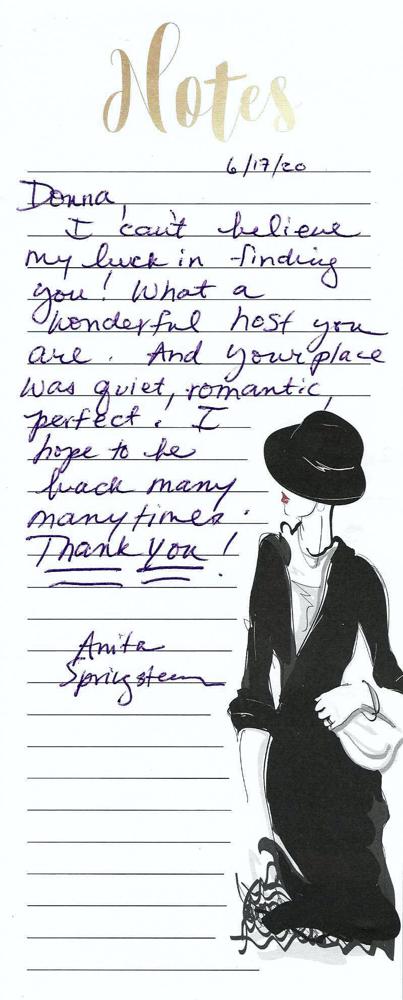 Notes
6/17/20
Donna,
I can't believe
my luck in finding
you! What a
wonderful host you
are. And your place
was quiet, romantic,
perfect! I
hope to be
back many
many times.
Thank You!
Anita
Springsteen